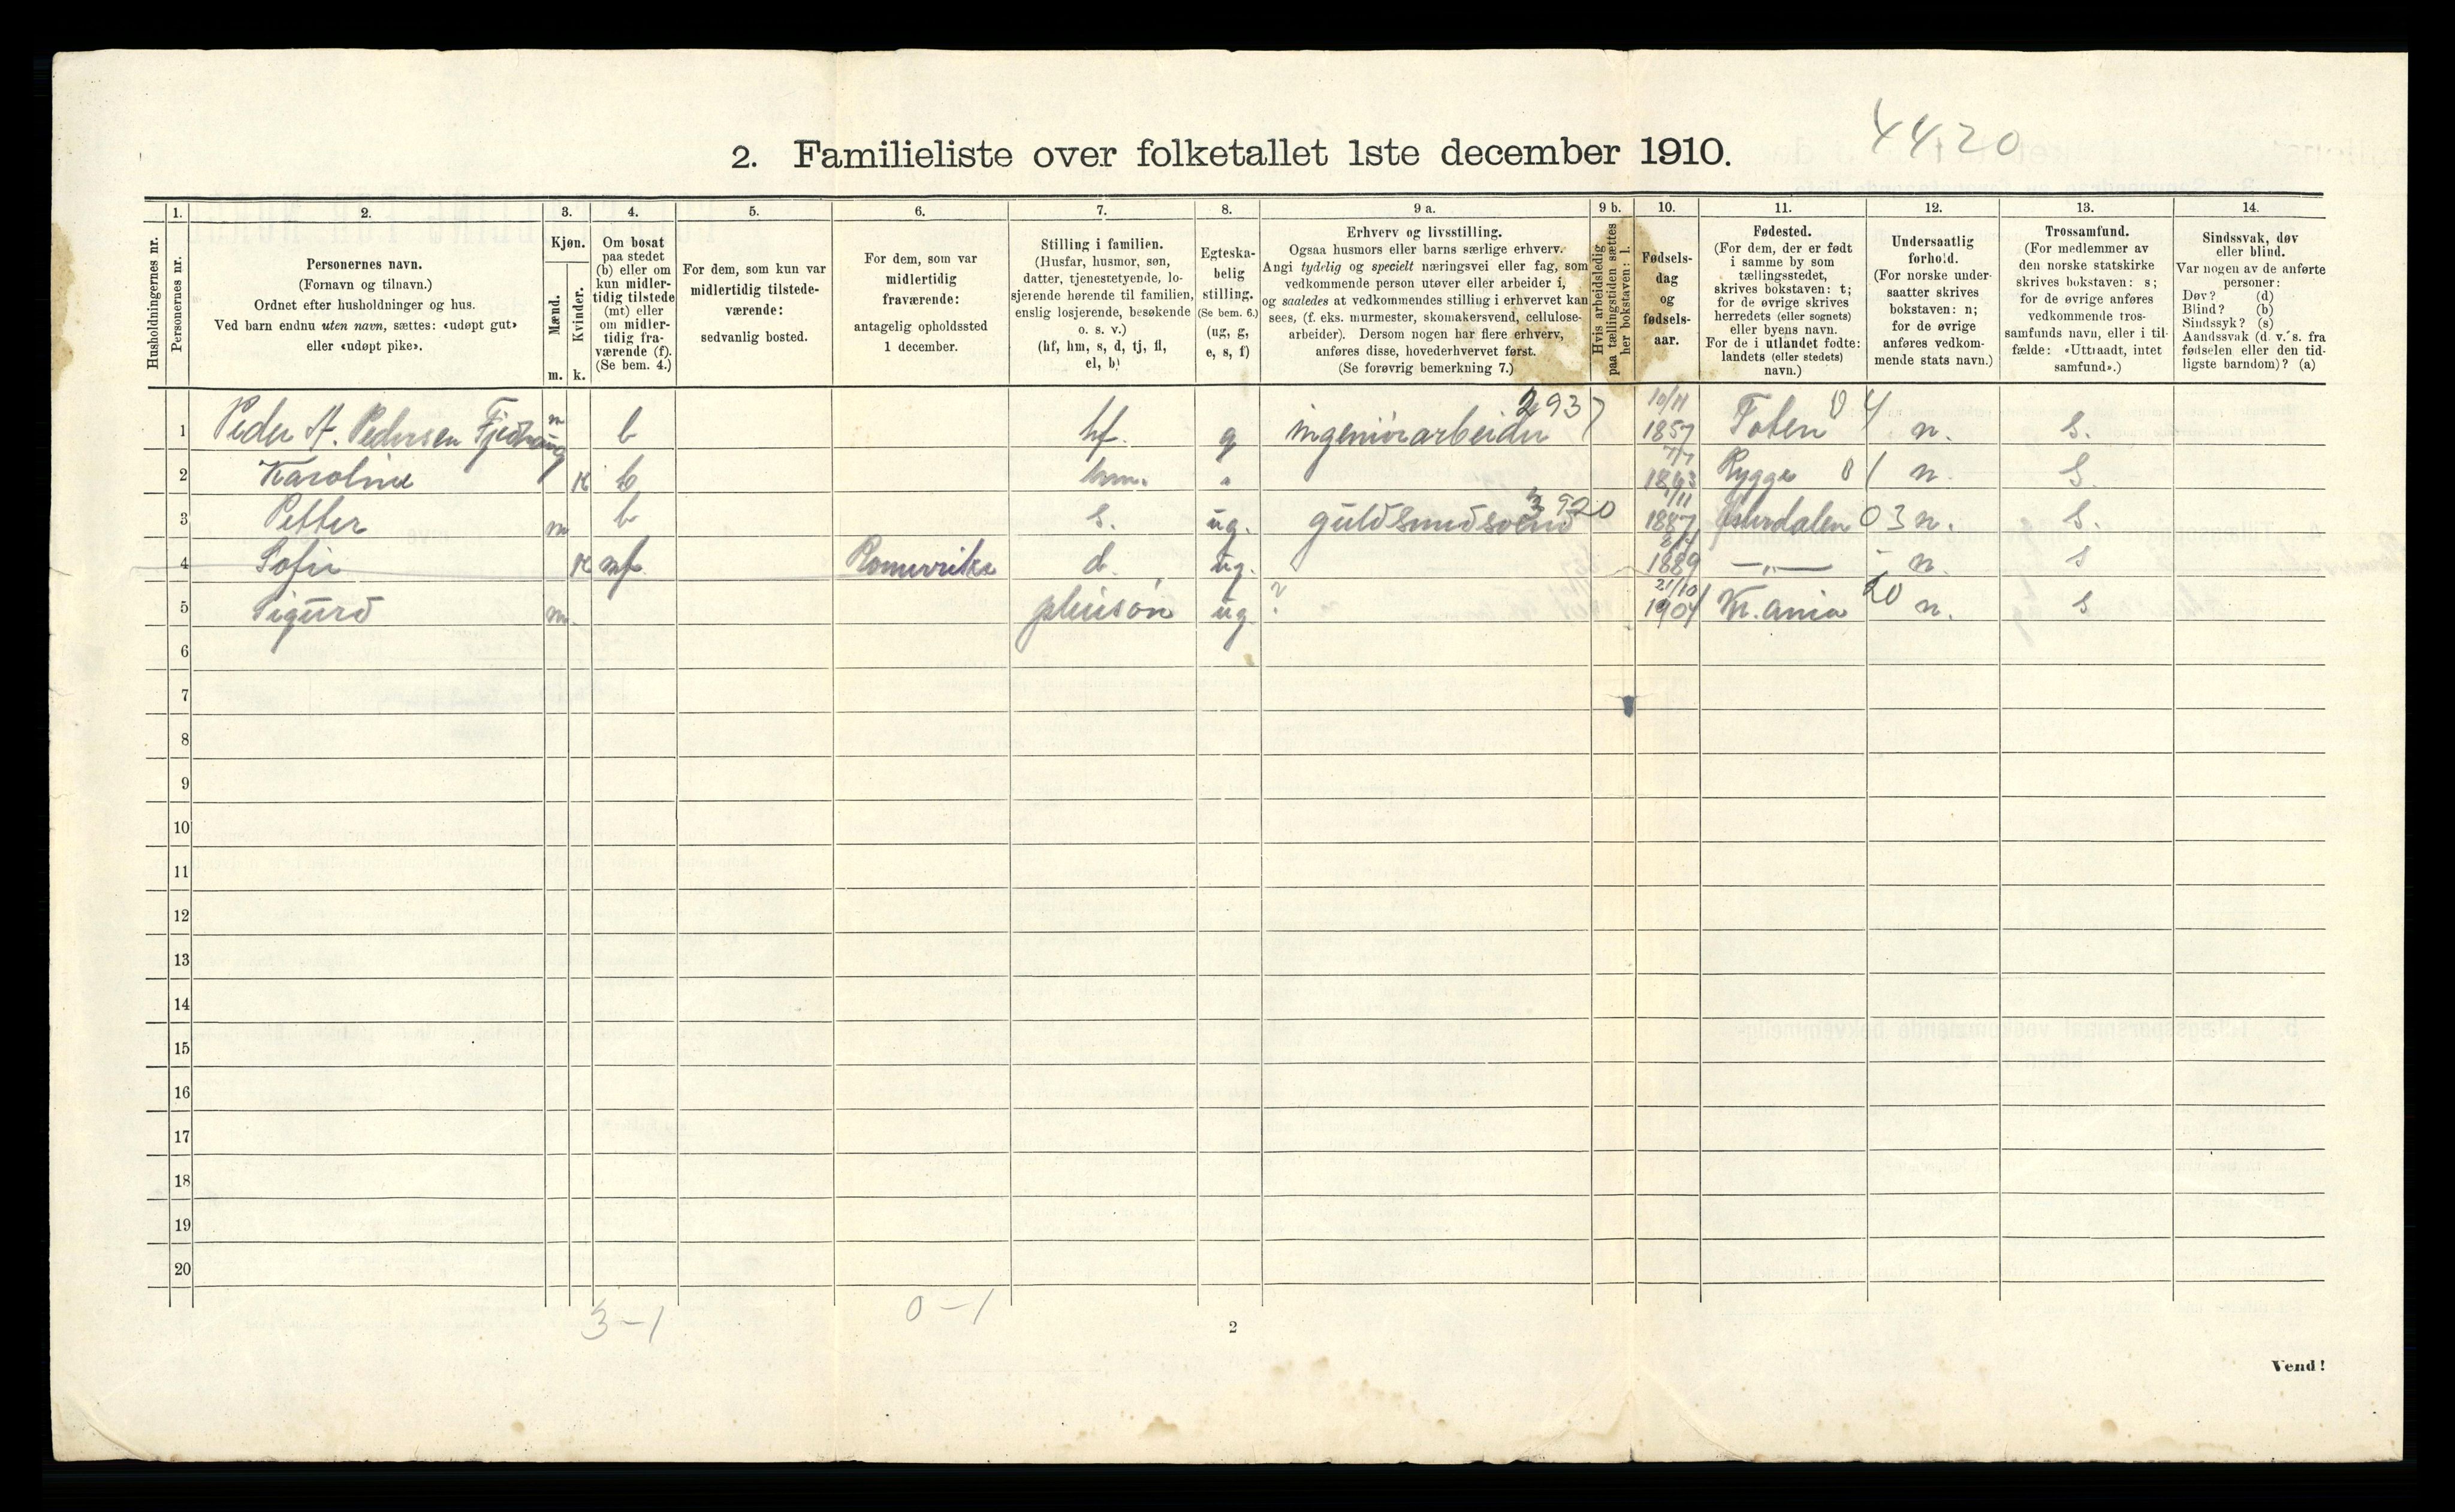 44.20
2. Familieliste over folketallet 1ste december 1910.
Husholdningernes nr.
1.
Personernes nr.
2.
Personernes navn.
(Fornavn og tilnavn.)
Ordnet efter husholdninger og hus.
Ved barn endnu uten navn, sættes: «udøpt gut»
eller «udøpt pike».
3.
Kjøn.
Mænd.
Kvinder.
m. k.
4.
Om bosat
paa stedet
(b) eller om
kun midler-
tidig tilstede
(mt) eller
om midler-
tidig fra-
værende (f).
(Se bem. 4.)
5.
For dem, som kun var
midlertidig tilstede-
værende:
sedvanlig bosted.
6.
For dem, som var
midlertidig
fraværende:
antagelig opholdssted
1 december.
7.
Stilling i familien.
(Husfar, husmor, søn,
datter, tjenestetyende, lo-
sjerende hørende til familien,
enslig losjerende, besøkende
o. s. v.)
(hf, hm, s, d, tj, fl,
el, b)
8.
Egteska-
belig
stilling.
(Se bem. 6.)
(ug, g,
e, s, f)
9 a.
Erhverv og livsstilling.
Ogsaa husmors eller barns særlige erhverv.
Angi tydelig og specielt næringsvei eller fag, som
vedkommende person utøver eller arbeider i,
og saaledes at vedkommendes stilling i erhvervet kan
sees, (f. eks. murmester, skomakersvend, cellulose-
arbeider). Dersom nogen har flere erhverv,
anføres disse, hovederhvervet først.
(Se forøvrig bemerkning 7.)
9 b.
Hvis arbeidsledig
paa tællingstiden sættes
her bokstaven: l.
10.
Fødsels-
dag
og
fødsels-
aar.
11.
Fødested.
(For dem, der er født
i samme by som
tællingsstedet,
skrives bokstaven: t;
for de øvrige skrives
herredets (eller sognets)
eller byens navn.
For de i utlandet fødte:
landets (eller stedets)
navn.)
12.
Undersaatlig
forhold.
(For norske under-
saatter skrives
bokstaven: n;
for de øvrige
anføres vedkom-
mende stats navn.)
13.
Trossamfund.
(For medlemmer av
den norske statskirke
skrives bokstaven: s;
for de øvrige anføres
vedkommende tros-
samfunds navn, eller i til-
fælde: «Uttraadt, intet
samfund».)
14.
Sindssvak, døv
eller blind.
Var nogen av de anførte
personer:
Døv? (d)
Blind? (b)
Sindssyk? (s)
Aandssvak (d. v. s. fra
fødselen eller den tid-
ligste barndom)? (a)
1 Peder A. Pedersen m b hf. g ingeniørarbeider 2937 10/11 1857 Toten 04 n. s.
2 Karoline k b hm. " 7/7 1863 Rygge 01 n. S.
3 Petter m b s. ug. guldsmudsvend 3920 1/11 1887 Østerdalen 03 n. s.
4 Sofie k mf Romerrike d. ug. 1889 — " — n. s
5 Sigurd m pleiesøn ug ? 21/10 1904 Kr.ania 20 n. s
6
7
8
9
10
11
12
13
14
15
16
17
18
19
20
3-1 0-1
2
Vend!